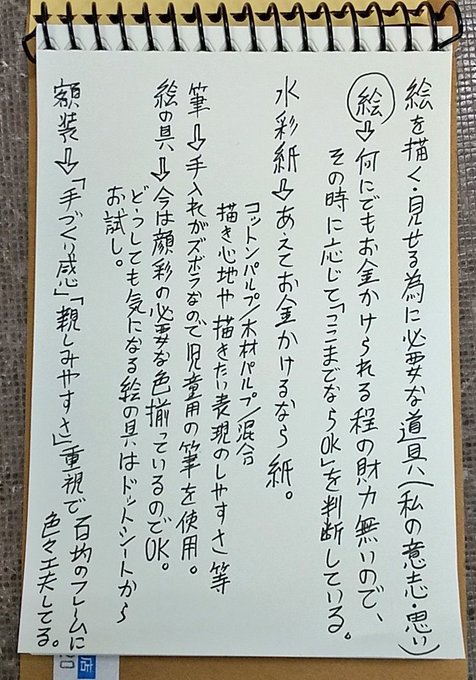 絵を描く・見せる為に必要な道具(私の意志・思い)
絵⇨何にでもお金かけられる程の財力無いので、
その時に応じて「ここまでならOK」を判断している。
水彩紙⇨あえてお金かけるなら紙。
コットンパルプ/木材パルプ/混合
描き心地や描きたい表現のしやすさ等
筆⇨手入れがズボラなので児童用の筆を使用。
絵の具⇨今は顔彩の必要な色揃っているのでOK。
どうしても気になる絵の具はドットシートから
お試し。
額装⇨「手づくり感」「親しみやすさ」重視で百均のフレームに
色々工夫してる。
店